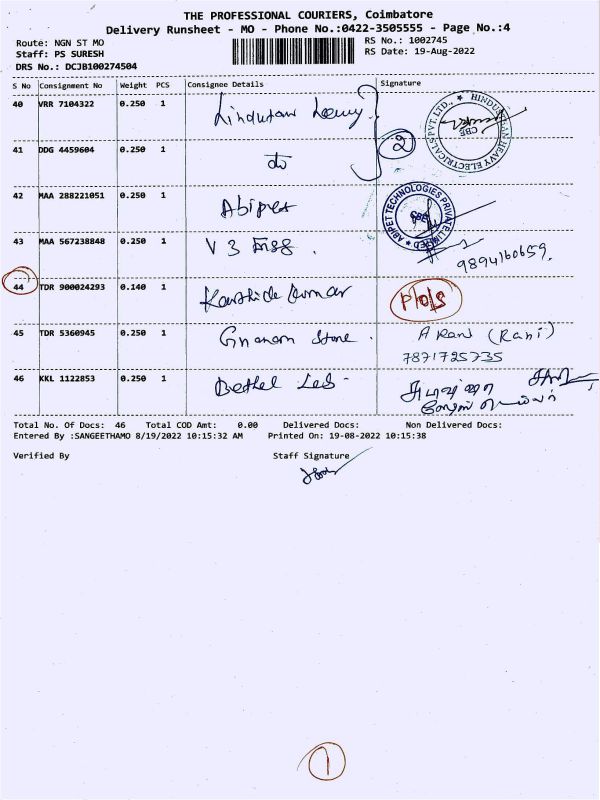 THE PROFESSIONAL COURIERS, Coimbatore
Delivery Runsheet - MO - Phone No.:0422-3505555 - Page No.:4
Route: NGN ST MO
Staff: PS SURESH
DRS No.: DCJB100274504
RS No.: 1002745
RS Date: 19-Aug-2022
S No Consignment No Weight PCS Consignee Details Signature
40 VRR 7104322 0.250 1
HINDUSTAN HEAVY ELECTRICALS PVT. LTD., ★ CBE
41 DDG 4459604 0.250 1 do 2
42 MAA 288221051 0.250 1 Abipet
ABIPET TECHNOLOGIES PRIVATE LIMITED ★ CBE
43 MAA 567238848 0.250 1 V 3 9894160659.
44 TDR 900024293 0.140 1 Karthick Kumar P/O/S
45 TDR 5360945 0.250 1 Gnanam Stone . A Rani (Rani)
7871725735
46 KKL 1122853 0.250 1 Bethel
Total No. Of Docs: 46 Total COD Amt: 0.00 Delivered Docs: Non Delivered Docs:
Entered By :SANGEETHAMO 8/19/2022 10:15:32 AM Printed On: 19-08-2022 10:15:38
Verified By Staff Signature
1